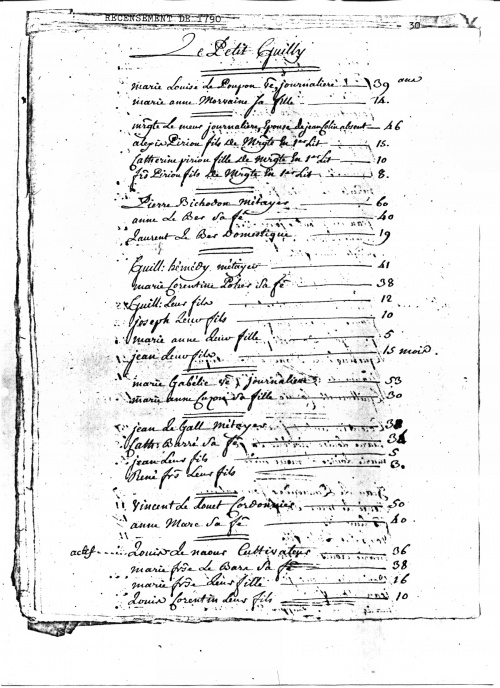 RECENSEMENT DE 1790
30
Le Petit Guilly
marie Louise de Poupon vᵉ, journaliere 39 ans
marie anne Morvaine sa fille 14.
Mrgte Le meur journaliere, Epouse de jean Colin absent 46
alexis Pirion fils de Mrgte En 1er Lit 15.
Catherine pirion fille de Mrgte En 1er Lit 10
frs Pirion fils de Mrgte En 1er Lit 8.
Pierre Bichodon métayer 60
anne Le Bas sa fe 40
Laurent Le Bas Domestique 19
Guill: hémédy métayer 41
marie Corentine sa fe 38
Guill: Leur fils 12
joseph Leur fils 10
marie anne Leur fille 5
jean leur fils 15 mois.
marie Gabélic vᵉ, journaliere 53
marie anne sa fille 30
jean Le Gall Métayer 38
Cath: Barré sa fe 34
jean Leur fils 5
René frs Leur fils 3.
Vincent Le Louet Cordonnier 50
anne Marc sa fe 40
actif Louis Le naour Cultivateur 36
marie frse Le Bara sa fe 38
marie frse Leur fille 16
Louis Corentin Leur fils 10